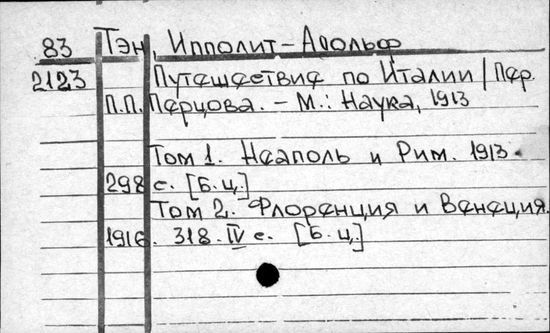 83 Тэн, Ипполит-Адольф
2123 Путешествие по Италии / Пер.
П.П. Перцова. – М.: Наука, 1913
Том 1. Неаполь и Рим. 1913.
298 с. [Б.ц.]
Том 2. Флоренция и Венеция.
1916. 318. IV с. [Б.ц.]